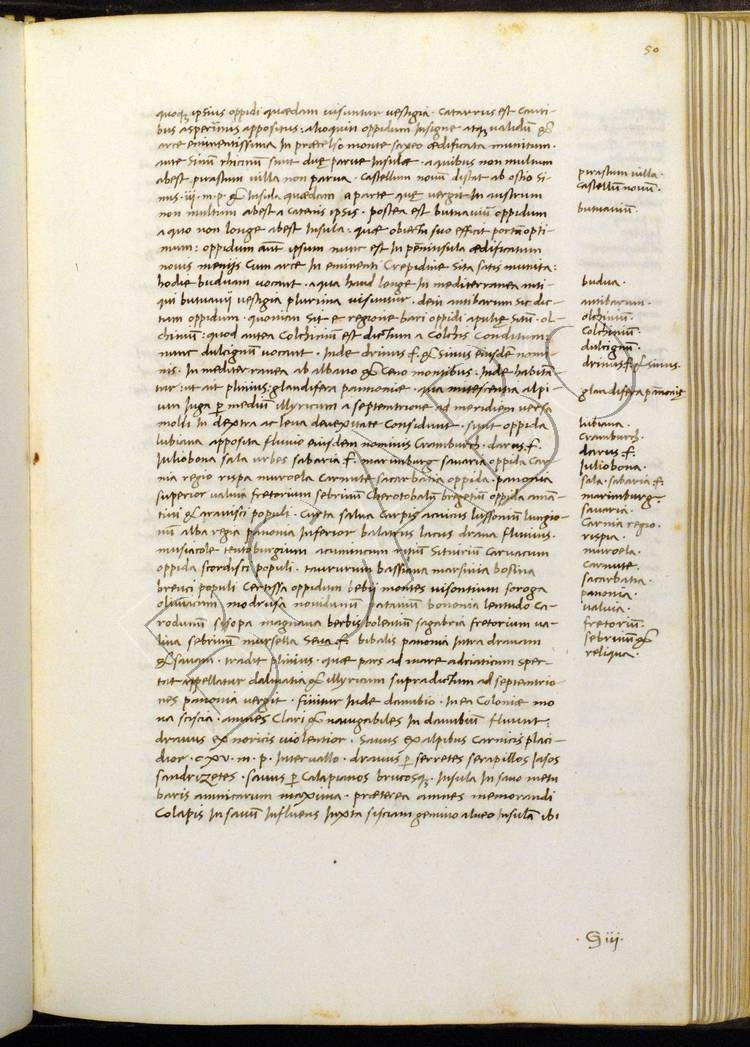 50
quoq; ipsius oppidi quædam visuntur vestigia. catarrus est cauti-
bus asperrimis appositus: alioquin oppidum insigne atq; validū &
arce eminentissima In præcelso monte saxeo ædificata munitum.
ante Sinū rhicinum sunt duę parvę Insulæ. a quibus non multum
abest pirastum villa non parva. Castellum novū distat ab ostio si-
nus .iii. m. p. & Insula quædam a parte quę vergit In austrum
non multum abest a catenis ipsis. postea est butuaviū oppidum
a quo non longe abest Insula: quæ obiectu suo efficit portū opti-
mum: oppidum aūt ipsum nunc est In pēninsula ædificatum
novis menijs Cum arce In eminenti Crepidine sita satis munita:
hodie buduam vocant. a qua haud longe In mediterranea anti-
qui butuavij vestigia plurima visuntur. dein antibarum sic dic-
tum oppidum. quoniam sit e regione bari oppidi apulię sitū. ol-
chiniū: quod antea Colchiniūm est dictum a Colchis Conditum:
nunc dulcignū vocant. Inde drinus f. & sinus eiusdē nomi-
nis. In mediterranea ab albano & Ceno montibus. Inde habun-
tur: ut ait plinius: glandifera pannonie. qua mitescentia alpi-
um Iuga p mediū illyricum a septentrione ad meridiem versa
molli In dextra ac leva devexitate Considunt. sunt oppida
lubiana apposita fluvio eiusdem nominis Cramburch. darus. f.
Iuliobona sala urbes sabaria f. marimburg savaria oppida Car-
nia regio rispa muroela Carnute sacarbatia oppida. panonia
superior valvia fretorium sebrinū Cherotobalū brigetiū oppida aman-
tini & aravisci populi. Curta salva Carpis acvinius lussoniū lungio-
nū alba regia panonia Inferior balatius lacus drava fluvius.
mursiacole teutoburgium acumincum ritiū siturium Carvacum
oppida scordisci populi. taururum bassiana marsinia bosina
breuci populi Certissa oppidum bebij montes visontium soroga
olimacum modrusa novidunū catanū bononia lentudo Ca-
rodunū sisopa magnana berbis bolentiū sagabria fretorium va-
lina sebrinū mursella Seva f. bibalis panonia Intra dravam
& savam. tradit plinius. quæ pars ad mare adriaticum spec-
tat appellatur dalmatia & illyricum supradictum ad septentrio-
nes panonia vergit. finitur Inde danubio. In ea Coloniæ mo
na siscia. amnes Clari & navigabiles In danubiū fluunt.
dravus ex noricis violentior. Savus ex alpibus Carnicis placi-
dior. cxv. m. p. Intervallo. dravus p serretes serapillos Iasos
sandrizetes. savus p Calapianos brucosq;. Insula In savo metu
baris amnicarum maxima. præterea amnes memorandi
Colapis In savū Influens Iuxta sisciam gemino alveo Insulā ibi
pirastum villa.
Castellū novū.
butuaviū.
budua.
antibarum.
olchiniū.
Colchiniū.
dulcignū.
drinus f. & sinus.
glandifera pānonię
lubiana.
Cramburch.
darus f.
Iuliobona.
sala. sabaria f.
marimburg.
savaria.
Carnia regio.
rispia.
muroela.
Carnute.
sacarbatia.
panonia.
valvia.
fretoriū.
sebrinū &
reliqua.
. G iij.